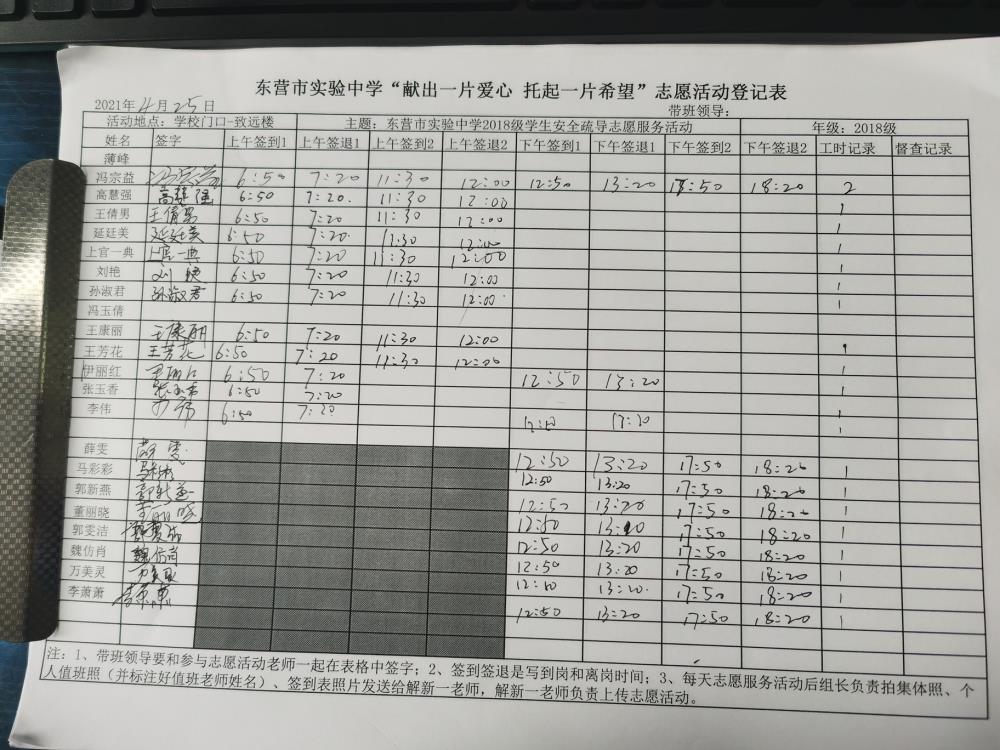 东营市实验中学“献出一片爱心 托起一片希望”志愿活动登记表
2021年4月25日 带班领导:
活动地点: 学校门口-致远楼 主题: 东营市实验中学2018级学生安全疏导志愿服务活动 年级: 2018级
姓名 签字 上午签到1 上午签退1 上午签到2 上午签退2 下午签到1 下午签退1 下午签到2 下午签退2 工时记录 督查记录
薄峰
冯宗益 冯宗益 6:50 7:20 11:30 12:00 12:50 13:20 17:50 18:20 2
高慧强 高慧强 6:50 7:20 11:30 12:00 1
王倩男 王倩男 6:50 7:20 11:30 12:00 1
延廷美 延廷美 6:50 7:20 11:30 12:00 1
上官一典 上官一典 6:50 7:20 11:30 12:00 1
刘艳 刘艳 6:50 7:20 11:30 12:00 1
孙淑君 孙淑君 6:50 7:20 11:30 12:00 1
冯玉倩
王康丽 王康丽 6:50 7:20 11:30 12:00 1
王芳花 王芳花 6:50 7:20 11:30 12:00 1
伊丽红 6:50 7:20 12:50 13:20 1
张玉香 张玉香 6:50 7:20 1
李伟 6:50 7:20 1
薛雯 薛雯 12:50 13:20 17:50 18:20 1
马彩彩 12:50 13:20 17:50 18:20 1
郭新燕 郭新燕 12:50 13:20 17:50 18:20 1
董丽晓 董丽晓 12:50 13:20 17:50 18:20 1
郭雯洁 12:50 13:20 17:50 18:20 1
魏仿肖 魏仿肖 12:50 13:20 17:50 18:20 1
万美灵 万美灵 13:20 17:50 18:20 1
李萧萧 李萧萧 12:50 13:20 17:50 18:20 1
注: 1、带班领导要和参与志愿活动老师一起在表格中签字; 2、签到签退是写到岗和离岗时间; 3、每天志愿服务活动后组长负责拍集体照、个
人值班照（并标注好值班老师姓名）、签到表照片发送给解新一老师，解新一老师负责上传志愿活动。